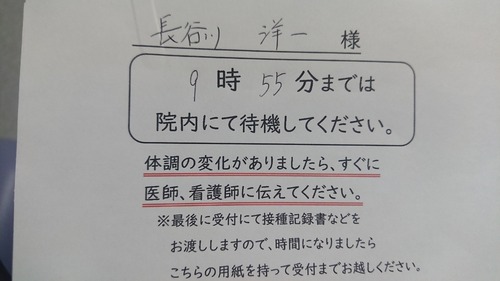 長谷川 洋一 様
9時55分までは
院内にて待機してください。
体調の変化がありましたら、すぐに
医師、看護師に伝えてください。
※最後に受付にて接種記録書などを
お渡ししますので、時間になりましたら
こちらの用紙を持って受付までお越しください。